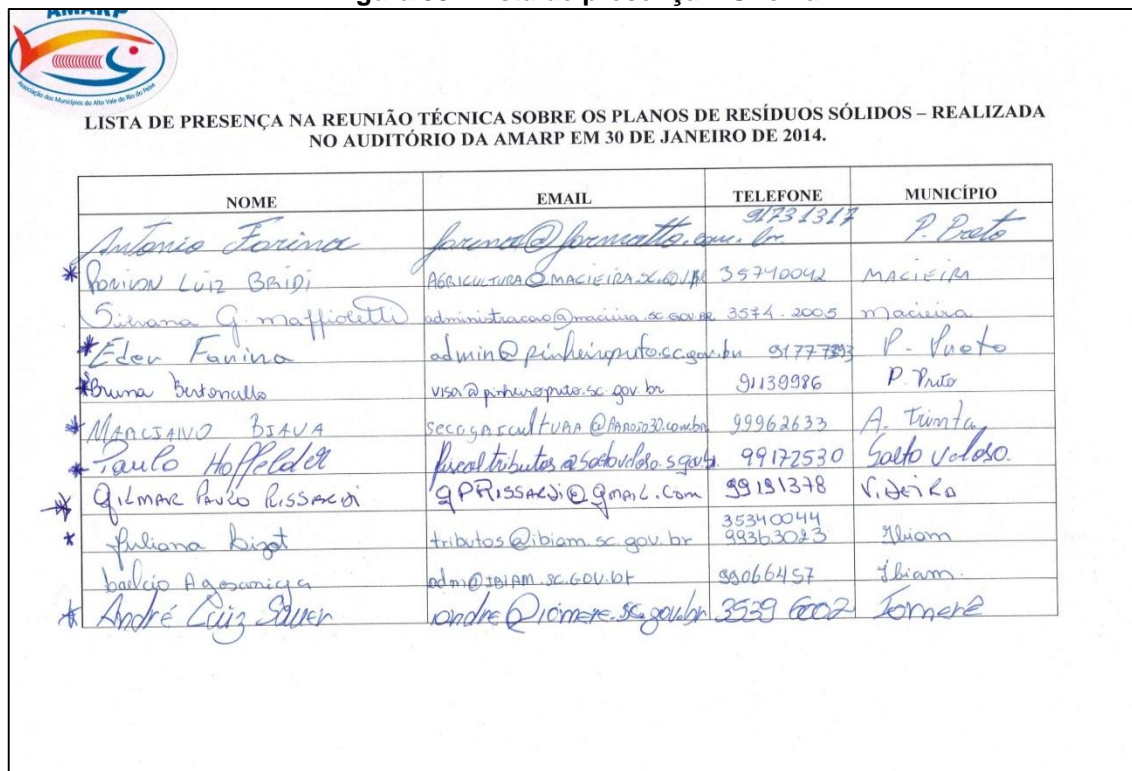 AMARP
Associação dos Municípios do Alto Vale do Rio do Peixe
LISTA DE PRESENÇA NA REUNIÃO TÉCNICA SOBRE OS PLANOS DE RESÍDUOS SÓLIDOS – REALIZADA
NO AUDITÓRIO DA AMARP EM 30 DE JANEIRO DE 2014.
NOME EMAIL TELEFONE MUNICÍPIO
Antonio Farina farina@formatto.com.br 91731317 P. Preto
* LUIZ BRIDI AGRICULTURA@MACIEIRA.SC.GOV.BR 35740042 MACIEIRA
Silvana G. Maffioletti administracao@macieira.sc.gov.br 3574.2005 Macieira
* Eder Farina admin@pinheiropreto.sc.gov.br P. Preto
* Bruna visa@pinheiropreto.sc.gov.br 91139986 P. Preto
* MARCIANO BIAVA 99962633 A. Trinta
* Paulo Hoffelder 99172530 Salto Veloso.
* GILMAR PAULO RISSARDI GPRISSARDI@gmail.com 99191378 VIDEIRA
* Juliana tributos@ibiam.sc.gov.br 35340044 99363023 Ibiam
adm@IBIAM.SC.GOV.br 99066457 Ibiam.
* André Luiz Sauer andre@iomere.sc.gov.br 3539 6002 Iomerê